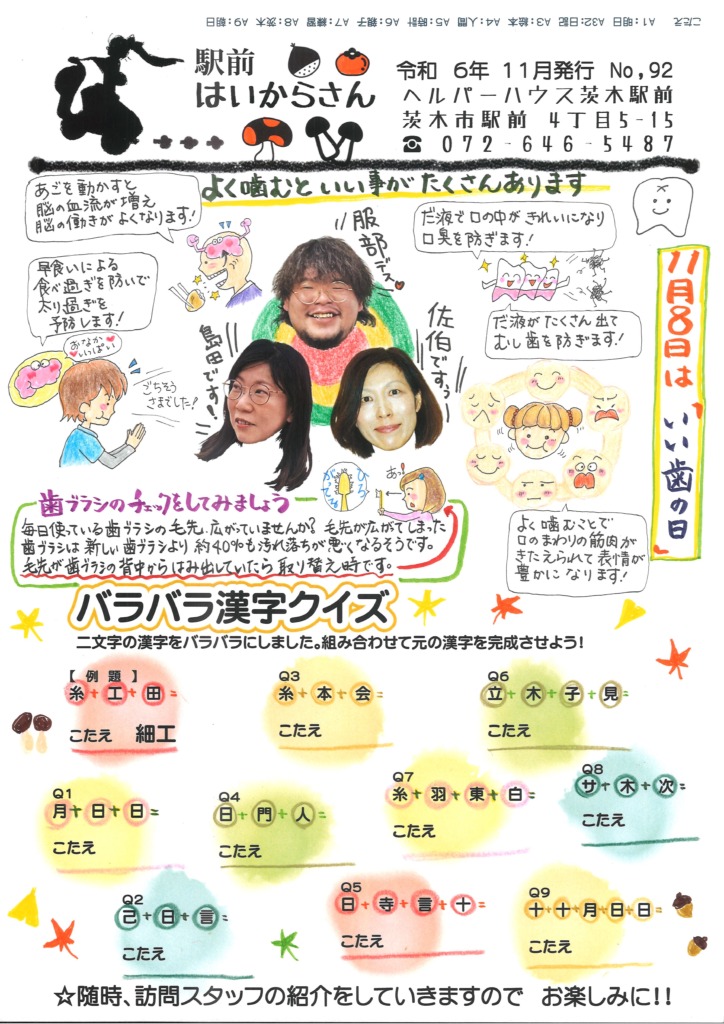 こたえ　A1：明日 A32:日記 A3：絵本 A4：人間 A5：時計 A6：親子 A7：練習 A8：茨木 A9：朝日
駅前
はいからさん
令和 6年 11月発行 No,92
ヘルパーハウス茨木駅前
茨木市駅前 4丁目5-15
☎ 072-646-5487
よく噛むと いい事が たくさんあります
あごを動かすと
脳の血流が増え
脳の働きが よくなります!
早食いによる
食べ過ぎを防いで
太り過ぎを
予防します!
おなか
いっぱい
ごちそう
さまでした!
服部デス
島田です!
佐伯ですぅ
だ液で口の中がきれいになり
口臭を防ぎます!
だ液が たくさん出て
むし歯を防ぎます!
11月8日は
いい歯の日
よく噛むことで
口のまわりの筋肉が
きたえられて表情が
豊かに なります!
歯ブラシのチェックをしてみましょう
ひろ
がってる
あっ!
毎日使っている歯ブラシの毛先、広がっていませんか? 毛先が広がてしまった
歯ブラシは 新しい歯ブラシより 約40%も汚れ落ちが悪くなるそうです。
毛先が歯ブラシの背中からはみ出していたら 取り替え時です。
バラバラ漢字クイズ
二文字の漢字をバラバラにしました。組み合わせて元の漢字を完成させよう!
【 例 題 】
糸+工+田=
こたえ　細工
Q3
糸+本+会=
こたえ
Q6
立+木+子+見
こたえ
Q1
月+日+日=
こたえ
Q4
日+門+人=
こたえ
Q7
糸+羽+東+白=
こたえ
Q8
サ+木+次=
こたえ
Q2
己+日+言=
こたえ
Q5
日+寺+言+十=
こたえ
Q9
十+十+月+日+日=
こたえ
☆随時、訪問スタッフの紹介をしていきますので　お楽しみに!!